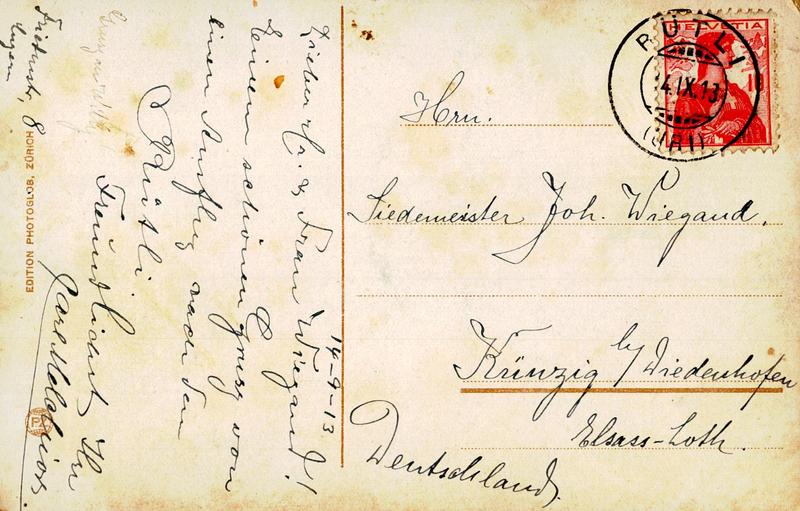 14-9-13
Lieber Hr. & Frau Wiegand!
Einen schönen Gruss von
einen Ausflug nach dem
Rütli
Freundlichst Ihr
Friedenstr. 8
Luzern
EDITION PHOTOGLOB, ZÜRICH
PZ
HELVETIA
10
RÜTLI
14.IX.13
(URI)
Hrn.
Siedemeister Joh. Wiegand.
Künzig b/ Diedenhofen
Elsass-Loth.
Deutschland.